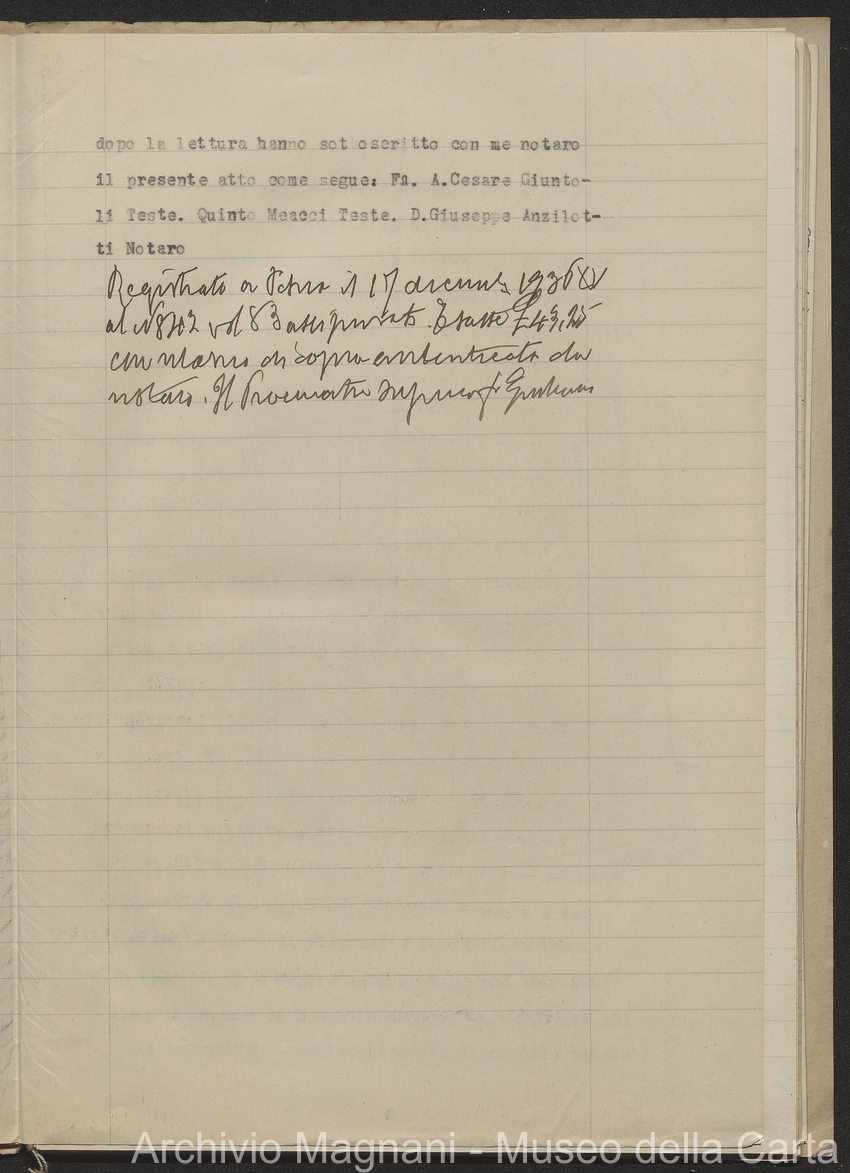 dopo la lettura hanno sottoscritto con me notaro
il presente atto come segue: Fa. A.Cesare Giunto-
li Teste. Quinto Meacci Teste. D.Giuseppe Anzilot-
ti Notaro
Registrato a Pescia il 17 dicembre 1936 XV
al N 842 vol 83 atti privati. Esatte £ 43,25
con marca di copia autenticata dal
notaro. Il Procuratore Superiore f°
Archivio Magnani - Museo della Carta